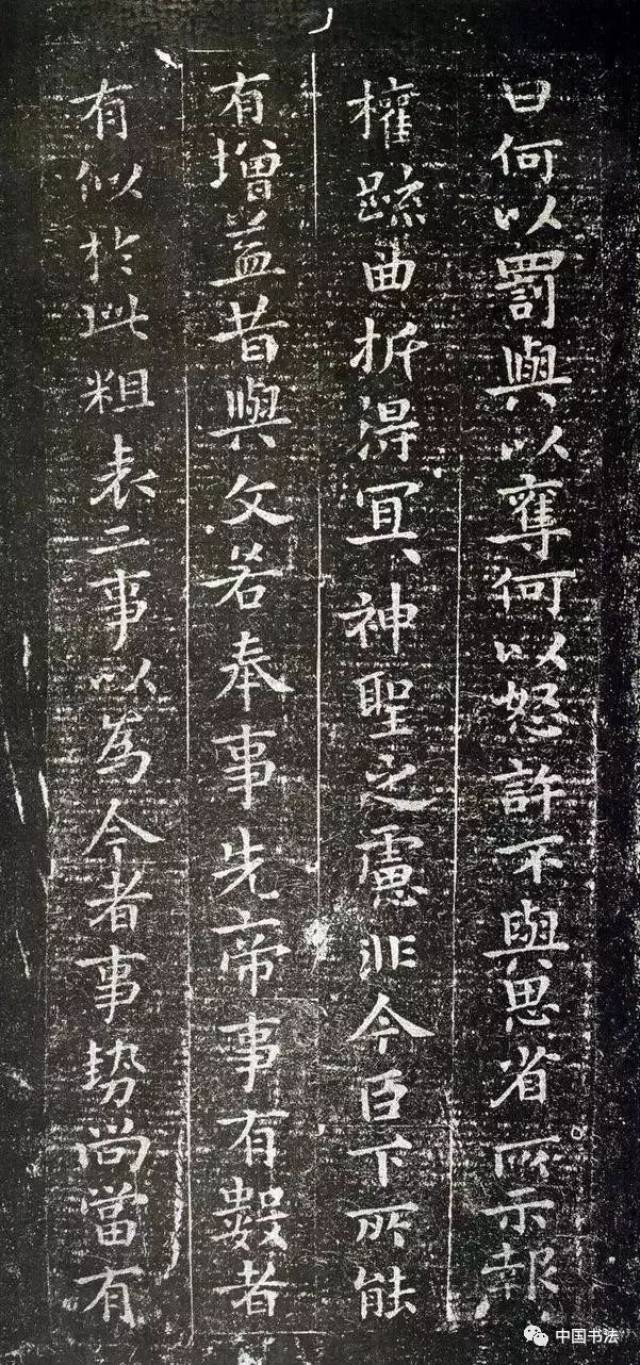 曰何以罰與以奪何以怒許不與思省所示報
權踈曲折得冝神聖之慮非今臣下所能
有增益昔與文若奉事先帝事有數者
有似於此粗表二事以為今者事勢尚當有
中国书法